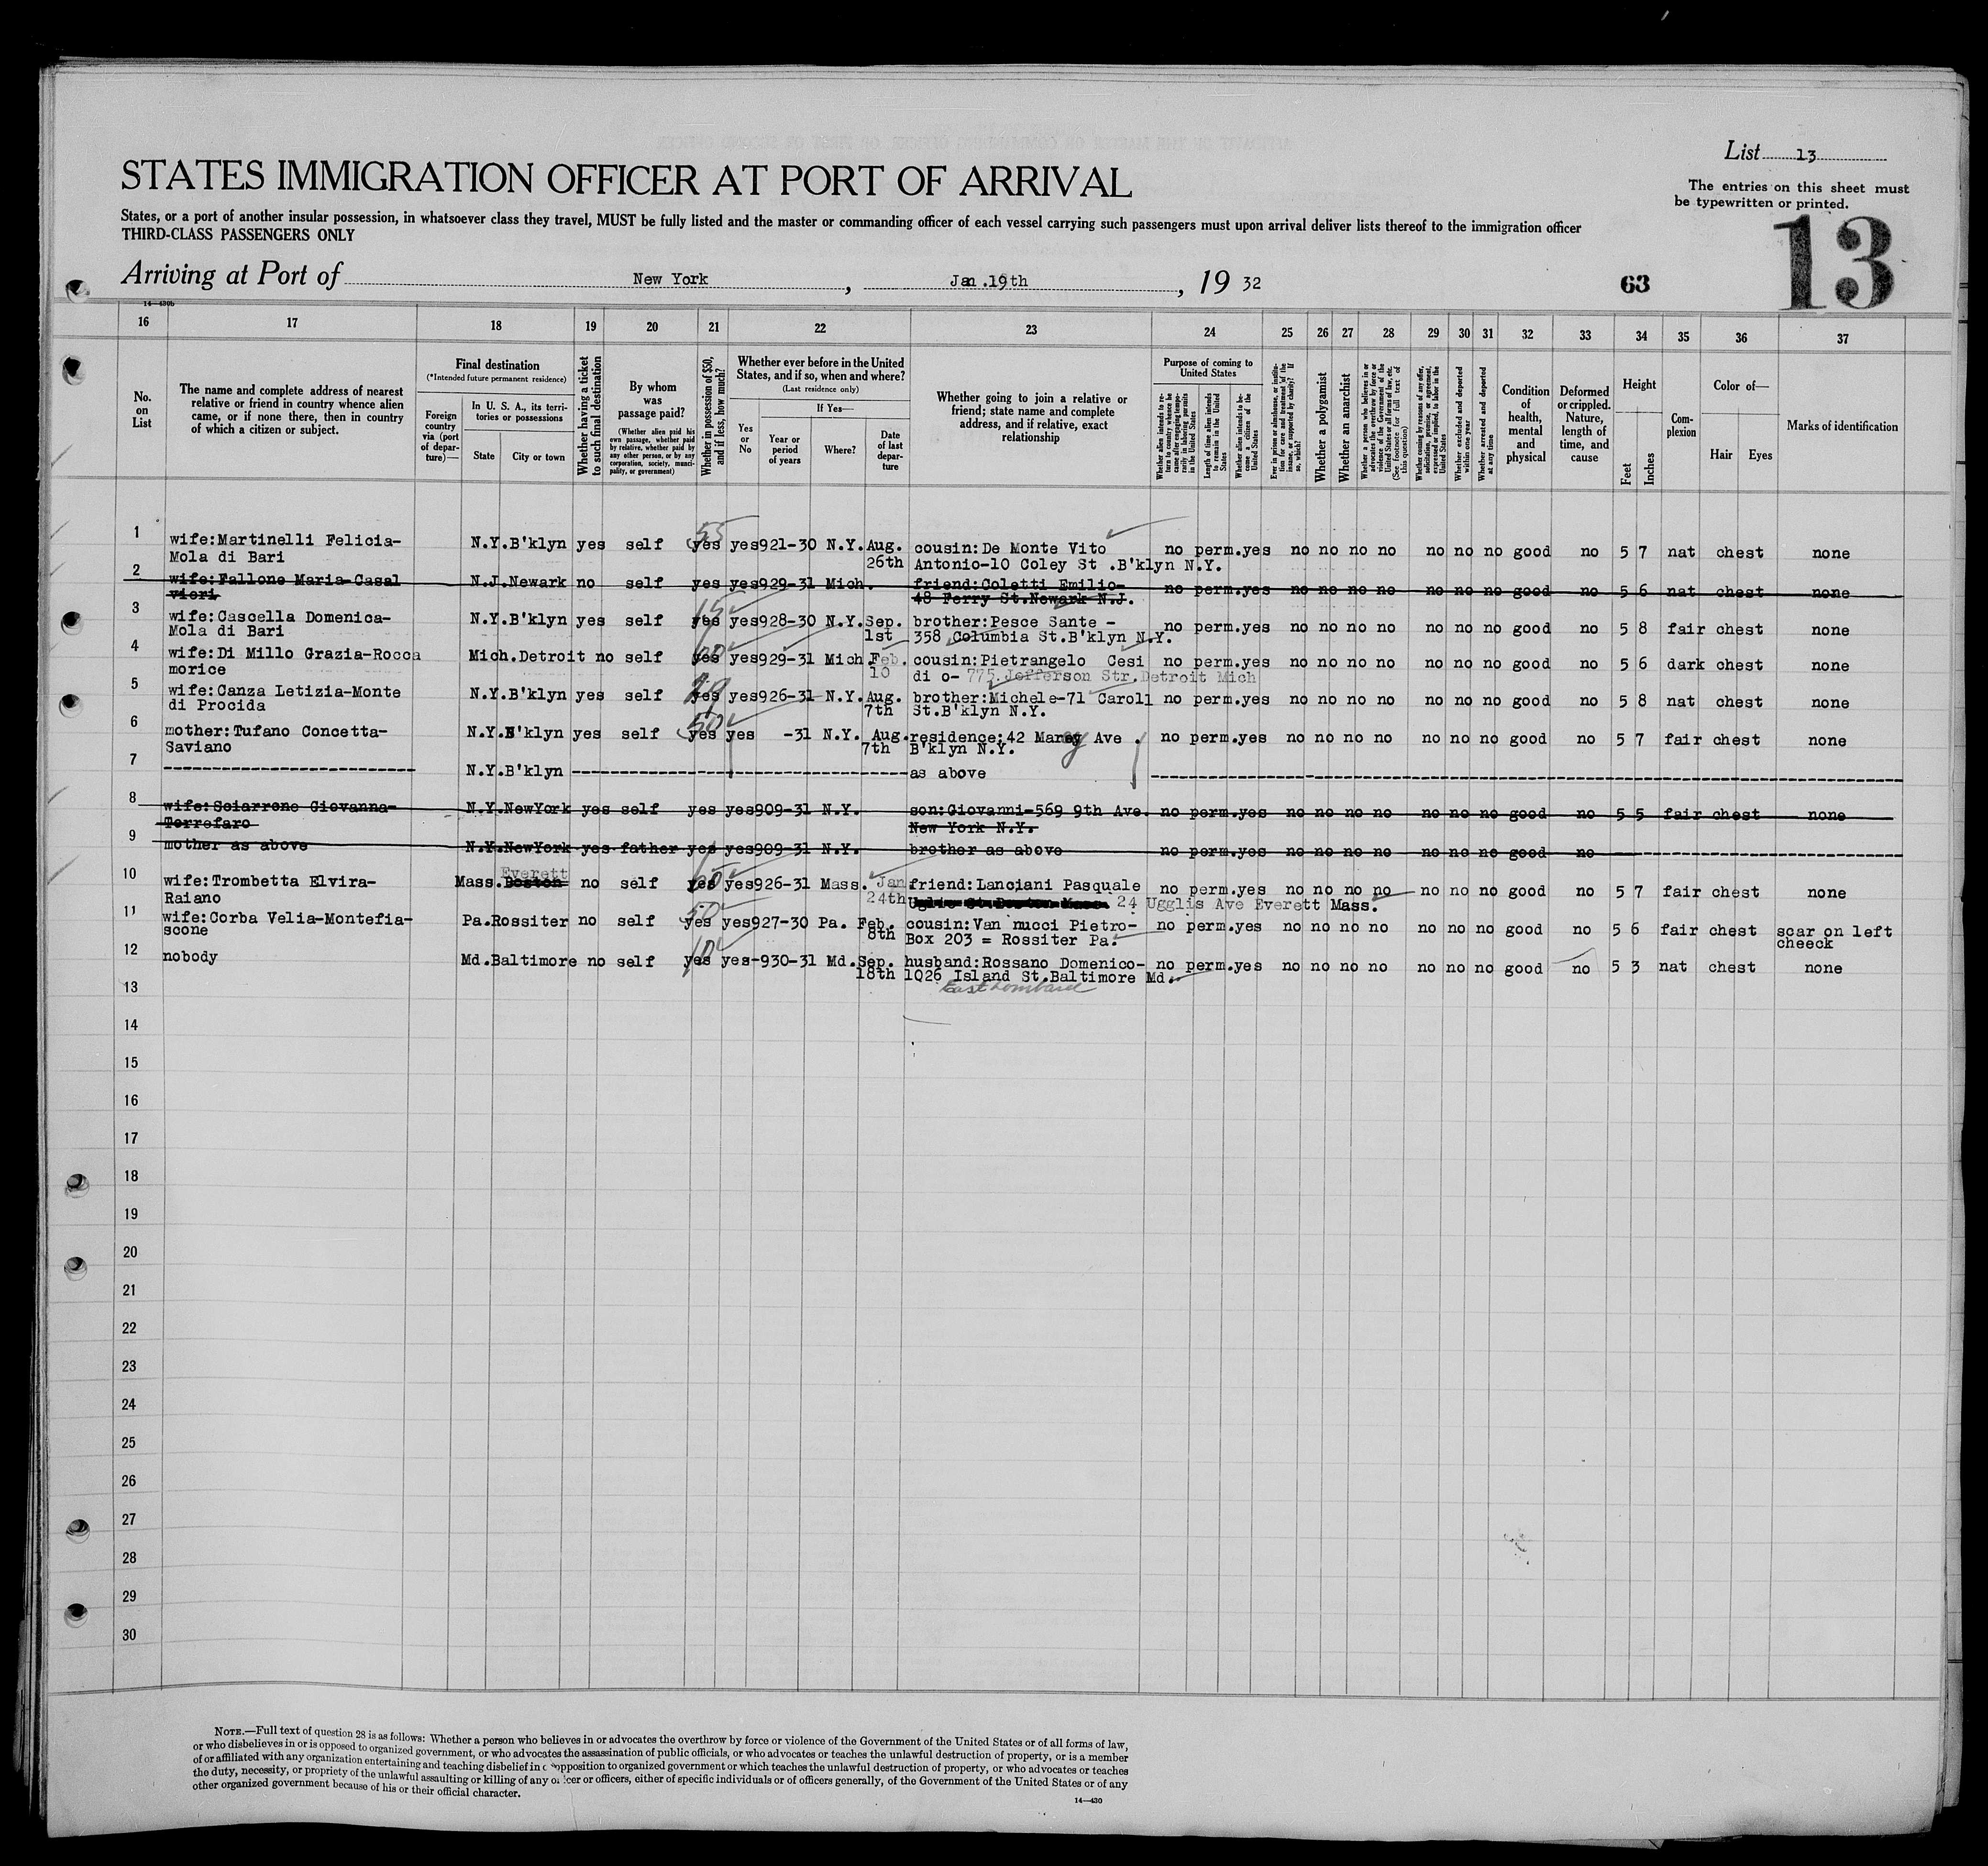 List 13
STATES IMMIGRATION OFFICER AT PORT OF ARRIVAL
The entries on this sheet must
be typewritten or printed.
States, or a port of another insular possession, in whatsoever class they travel, MUST be fully listed and the master or commanding officer of each vessel carrying such passengers must upon arrival deliver lists thereof to the immigration officer
THIRD-CLASS PASSENGERS ONLY
13
Arriving at Port of New York, Jan.19th, 19 32
63
14—430b
16 17 18 19 20 21 22 23 24 25 26 27 28 29 30 31 32 33 34 35 36 37
No. on List
The name and complete address of nearest
relative or friend in country whence alien
came, or if none there, then in country
of which a citizen or subject.
Final destination
(*Intended future permanent residence)
Foreign country via (port of departure)—
In U. S. A., its territories or possessions
State
City or town
Whether having a ticket to such final destination
By whom was passage paid?
(Whether alien paid his own passage, whether paid by relative, whether paid by any other person, or by any corporation, society, municipality, or government)
Whether in possession of $50, and if less, how much?
Whether ever before in the United
States, and if so, when and where?
(Last residence only)
Yes or No
If Yes—
Year or period of years
Where?
Date of last departure
Whether going to join a relative or
friend; state name and complete
address, and if relative, exact
relationship
Purpose of coming to United States
Whether alien intends to return to country whence he came after engaging temporarily in laboring pursuits in the United States
Length of time alien intends to remain in the United States
Whether alien intends to become a citizen of the United States
Ever in prison or almshouse, or institution for care and treatment of the insane, or supported by charity? If so, which?
Whether a polygamist
Whether an anarchist
Whether a person who believes in or advocates the overthrow by force or violence of the Government of the United States or all forms of law, etc. (See footnote for full text of this question)
Whether coming by reasons of any offer, solicitation, promise, or agreement, expressed or implied, to labor in the United States
Whether excluded and deported within one year
Whether arrested and deported at any time
Condition of health, mental and physical
Deformed or crippled. Nature, length of time, and cause
Height
Feet
Inches
Complexion
Color of—
Hair
Eyes
Marks of identification
55
1 wife:Martinelli Felicia- N.Y.B'klyn yes self yes yes921-30 N.Y.Aug. cousin:De Monte Vito no perm.yes no no no no no no no good no 5 7 nat chest none
Mola di Bari 26th Antonio-10 Coley St .B'klyn N.Y.
2 wife:Fallone Maria-Casal N.J.Newark no self yes yes929-31 Mich. friend:Coletti Emilio- no perm.yes no no no no no no no good no 5 6 nat chest none
vieri 48 Ferry St.Newark N.J.
15
3 wife:Cascella Domenica- N.Y.B'klyn yes self yes yes928-30 N.Y.Sep. brother:Pesce Sante - no perm.yes no no no no no no no good no 5 8 fair chest none
Mola di Bari 1st 358 Columbia St.B'klyn N.Y.
4 wife:Di Millo Grazia-Rocca Mich.Detroit no self yes yes929-31 Mich Feb. cousin:Pietrangelo Cesi no perm.yes no no no no no no no good no 5 6 dark chest none
morice 10 di o- 775 Jefferson Str.Detroit Mich
5 wife:Canza Letizia-Monte N.Y.B'klyn yes self yes yes926-31 N.Y. Aug. brother:Michele-71 Caroll no perm.yes no no no no no no no good no 5 8 nat chest none
di Procida 7th St.B'klyn N.Y.
50
6 mother:Tufano Concetta- N.Y.B'klyn yes self yes yes -31 N.Y. Aug. residence:42 Marcy Ave . no perm.yes no no no no no no no good no 5 7 fair chest none
Saviano 7th B'klyn N.Y.
7 N.Y.B'klyn as above
8 wife:Sciarrone Giovanna- N.Y.NewYork yes self yes yes909-31 N.Y. son:Giovanni-569 9th Ave. no perm.yes no no no no no no no good no 5 5 fair chest none
Terrefaro New York N.Y.
9 mother as above N.Y.NewYork yes father yes yes909-31 N.Y. brother as above no perm.yes no no no no no no no good no
Everett
10 wife:Trombetta Elvira- Mass.Boston no self yes yes926-31 Mass. Jan friend:Lanciani Pasquale no perm.yes no no no no no no no good no 5 7 fair chest none
Raiano 24th Uglis St.Boston Mass. 24 Ugglis Ave Everett Mass.
50
11 wife:Corba Velia-Montefia- Pa.Rossiter no self yes yes927-30 Pa. Feb. cousin:Van nucci Pietro- no perm.yes no no no no no no no good no 5 6 fair chest scar on left
scone 8th Box 203 = Rossiter Pa. cheeck
10
12 nobody Md.Baltimore no self yes yes-930-31 Md.Sep. husband:Rossano Domenico- no perm.yes no no no no no no no good no 5 3 nat chest none
18th 1026 Island St.Baltimore Md.
East Lombard
13
14
15
16
17
18
19
20
21
22
23
24
25
26
27
28
29
30
NOTE.—Full text of question 28 is as follows: Whether a person who believes in or advocates the overthrow by force or violence of the Government of the United States or of all forms of law,
or who disbelieves in or is opposed to organized government, or who advocates the assassination of public officials, or who advocates or teaches the unlawful destruction of property, or is a member
of or affiliated with any organization entertaining and teaching disbelief in opposition to organized government or which teaches the unlawful destruction of property, or who advocates or teaches
the duty, necessity, or propriety of the unlawful assaulting or killing of any officer or officers, either of specific individuals or of officers generally, of the Government of the United States or of any
other organized government because of his or their official character.
14—430